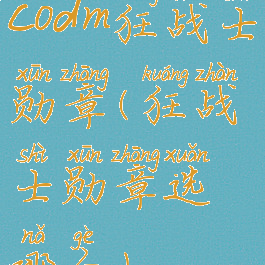 codm狂战士
xūn zhāng kuáng zhàn
勋章(狂战
shì xūn zhāng xuǎn
士勋章选
nǎ gè
哪个)